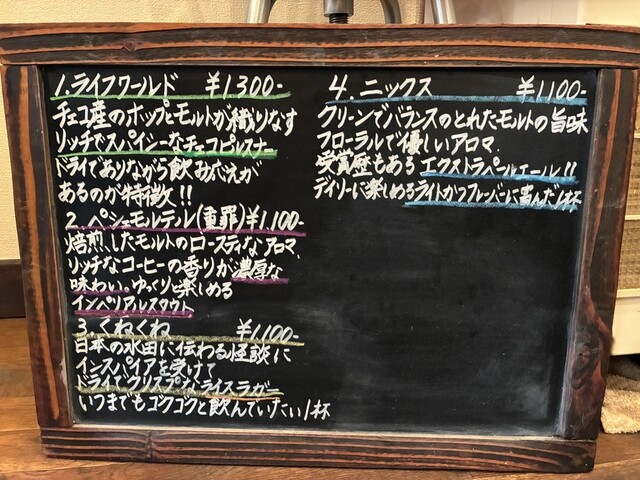 1.ライフワールド ¥1.300-
チェコ産のホップとモルトが織りなす
リッチでスパイシーなチェコピルスナー
ドライでありながら飲みごたえが
あるのが特徴!!
2.ペシェモルテル(重罪)¥1.100-
焙煎したモルトのロースティなアロマ、
リッチなコーヒーの香りが濃厚な
味わい。ゆっくりと楽しめる
インペリアルスタウト
3.くねくね ¥1,100-
日本の水田に伝わる怪談に
インスパイアを受けて
ドライでクリスプなライスラガー
いつまでもゴクゴクと飲んでいたい1杯
4.ニックス ¥1100-
クリーンでバランスのとれたモルトの旨味
フローラルで優しいアロマ
受賞歴もあるエクストラペールエール!!
デイリーに楽しめるライトかつフレーバーに富んだ1杯